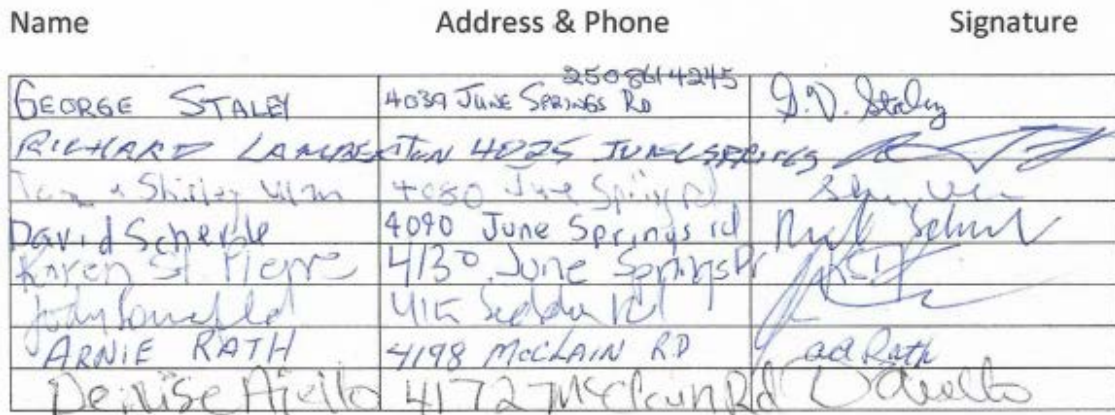 Name Address & Phone Signature
2508614245
GEORGE STALEY 4039 JUNE SPRINGS RD G.V. Staley
RICHARD LAMBERTON 4025 JUNE SPRINGS
Tom & Shirley 4080 June Springs rd
David Scherle 4090 June Springs rd
Karen St Pierre 4130 June Springs Dr KSTP
Jody Rd
ARNIE RATH 4198 McCLAIN RD ad Rath
Denise Aiello 4172 McClain Rd D Aiello